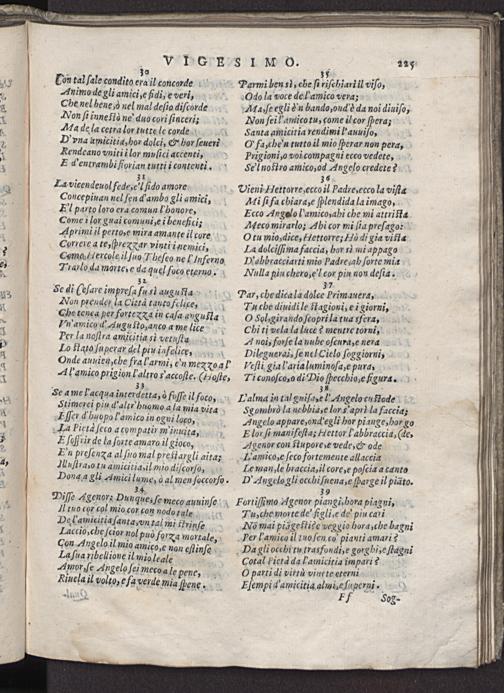 VIGESIMO. 225
30
Con tal sale condito era il concorde
Animo de gli amici, e fidi, e veri,
Che nel bene, ò nel mal desio discorde
Non si innestò nè duo cori sinceri;
Ma de la cetra lor tutte le corde
D'vna amicitia, hor dolci, & hor seueri
Rendeano vniti i lor musici accenti,
E d'entrambi fiorian tutti i contenti.
31
La vicendeuol fede, e'l fido amore
Concepiuan nel sen d'ambo gli amici,
E'l parto loro era comun l'honore,
Come i lor guai comuni, e i benefici;
Aprimi il petto, e mira amante il core
Correre a te, sprezzar vinti i nemici,
Come Hercole il suo Theseo ne l'Inferno
Trarlo da morte, e da quel foco eterno.
32
Se di Cesare impresa fu sì augusta
Non prender la Città tanto felice,
Che tenea per fortezza in casa angusta
Vn'amico d'Augusto, anco a me lice
Per la nostra amicitia sì vetusta
Lo stato superar del più infelice,
Onde auuien, che fra l'armi, e'n mezzo a l'
A l'amico prigion l'altro s'accoste. (Hoste,
33
Se a me l'acqua interdetta, ò fosse il foco,
Stimerei più d'altr'huomo a la mia vita
Esser d'huopo l'amico in ogni loco,
La Pietà seco a compatir m'inuita,
E soffrir de la sorte amaro il gioco,
E'n presenza al suo mal prestargli aita;
Illustra, o tu amicitia, il mio discorso,
Dona a gli Amici lume, ò al men soccorso.
34
Disse Agenor; Dunque, se meco auuinse
Il tuo cor col mio cor con nodo tale
De l'amicitia santa, vn tal mi strinse
Laccio, che scior nol può forza mortale,
Con Angelo il mio amico, e non estinse
La sua ribellione il mio leale
Amor, se Angelo sei meco a le pene,
Riuela il volto, e fa verde mia spene.
35
Parmi ben sì, che si rischiari il viso,
Odo la voce de l'amico vera;
Ma, se egli è'n bando, ond'è da noi diuiso,
Non sei l'amico tu, come il cor spera;
Santa amicitia rendimi l'auuiso,
O fa, che'n tutto il mio sperar non pera,
Prigioni, o voi compagni ecco vedete,
Se'l nostro amico, od Angelo credete?
36
Vieni Hettorre, ecco il Padre, ecco la vista
Mi si fa chiara, e splendida la imago,
Ecco Angelo l'amico, ahi che mi attrista
Meco mirarlo; Ahi cor mi sta presago:
O tu mio, dice, Hettorre; Hò di già vista
La dolcissima faccia, hor sì mi appago
D'abbracciarti mio Padre, ah sorte mia
Nulla più chero, e'l cor più non desia.
37
Par, che dica la dolce Primauera,
Tu che diuidi le stagioni, e i giorni,
O Sol, girando scopri la tua sfera,
Chi ti vela la luce? mentre torni,
A noi, forse la nube oscura, e nera
Dileguerai, se nel Cielo soggiorni,
Vesti gia l'aria luminosa, e pura,
Ti conosco, o di Dio specchio, e figura.
38
L'alma in tal guisa, e'l Angelo custode
Sgombrò la nebbia, e lor s'aprì la faccia;
Angelo appare, ond'egli hor piange, hor go
E lor si manifesta; Hettor l'abbraccia, (de,
Agenor con stupore, e vede, & ode
L'amico, e seco fortemente allaccia
Le man, le braccia, il core, e poscia a canto
D'Angelo gli occhi suena, e sparge il piāto.
39
Fortissimo Agenor piangi, hora piagni,
Tu, che morte de' figli, e de' piu cari
Nō mai piāgesti? e veggio hora, che bagni
Per l'amico il tuo sen co' pianti amari?
Da gli occhi tu trasfondi, e gorghi, e stagni
Cotal Pietà da l'amicitia impari?
O parti di virtù viuete eterni
Esempi d'amicitia almi, e superni.
Ff Sog-